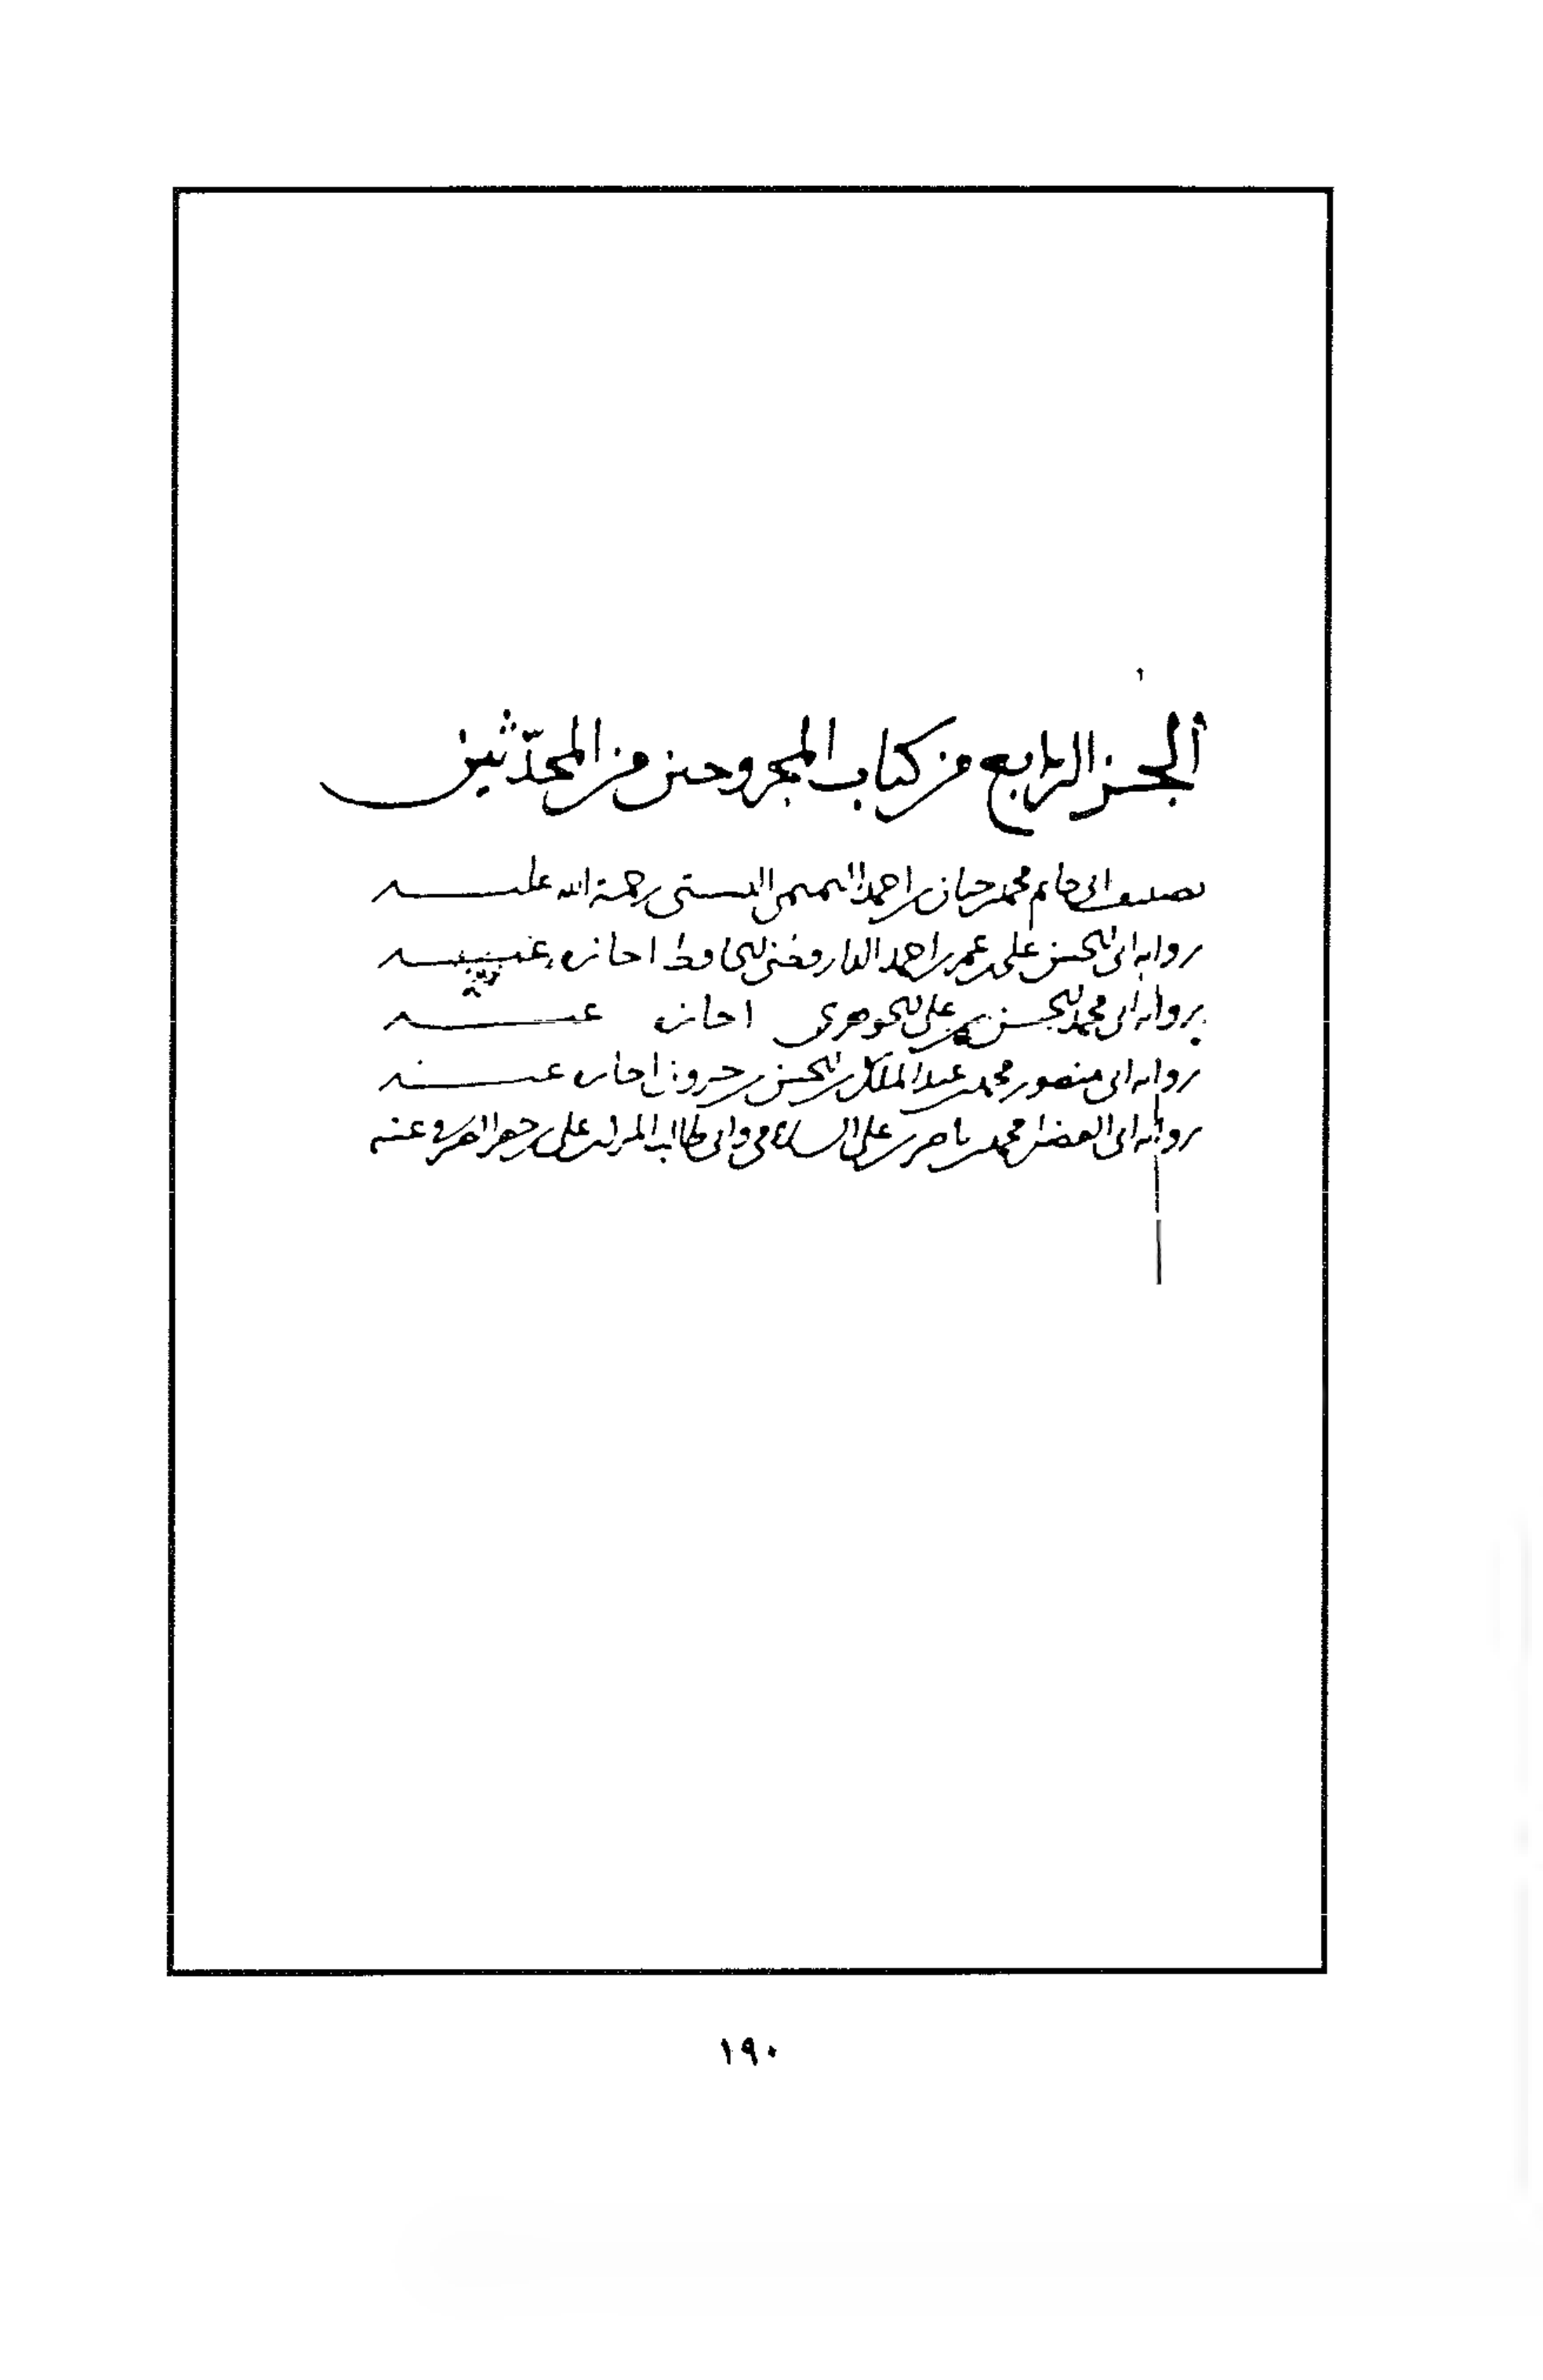 الجزء الرابع من كتاب المجروحين من المحدّثين
تصنيف ابى حاتم محمد بن حبان بن احمد التميمى البستى رحمة الله عليه
رواية ابى الحسن على بن عمر بن احمد الدارقطنى الحافظ اجازة عنه
رواية ابى محمد الحسن بن على الجوهرى اجازة عنه
رواية ابى منصور محمد بن عبد الملك بن الحسن بن خيرون اجازة عنه
رواية ابى الفضل محمد بن ناصر بن على السلامى وابى طالب المبارك بن على بن عنه
١٩٠